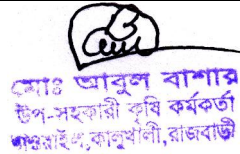 মোঃ আবুল বাশার
উপ-সহকারী কৃষি কর্মকর্তা
কালুখালী, রাজবাড়ী